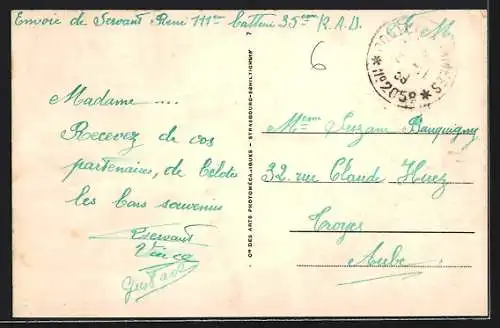 Envoie de Servant René 111eme Batterie 35eme R.A.D.
F. M
6
Nº 2058
Madame ....
Recevez de vos
partenaires, de
les bons souvenirs
Servant
Vince
Gustave
Cie DES ARTS PHOTOMÉCANIQUES - STRASBOURG-SCHILTIGHEIM
Mme Suzanne
32. rue Claude Huez
Troyes
Aube